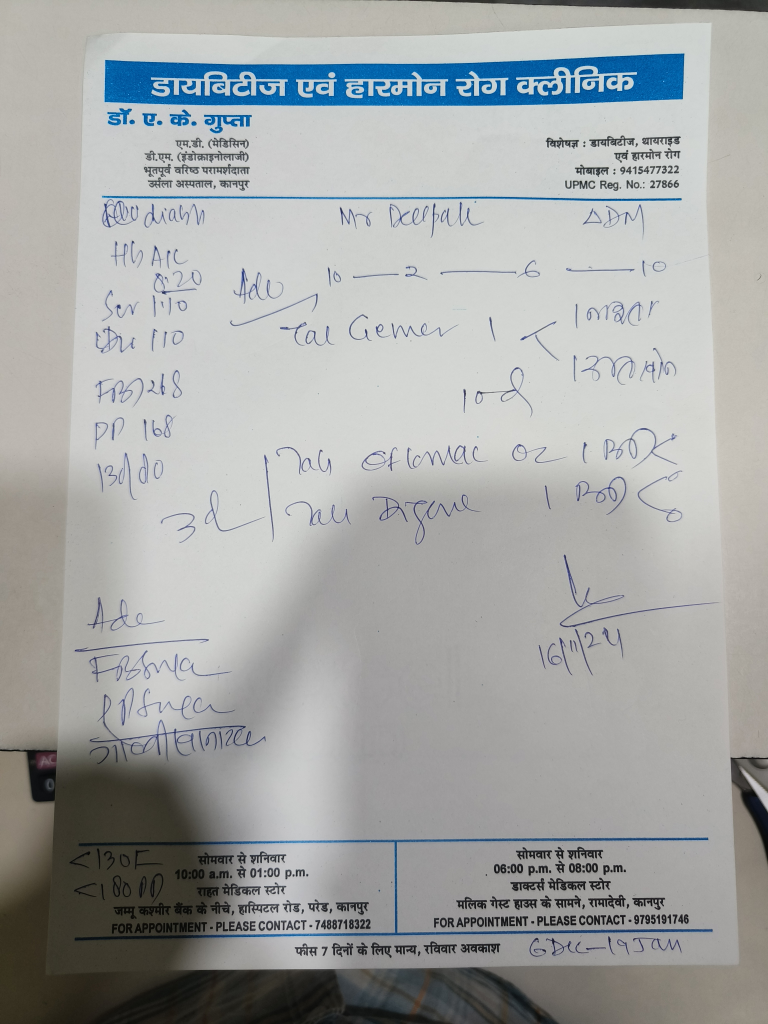 डायबिटीज एवं हारमोन रोग क्लीनिक
डॉ. ए. के. गुप्ता
एम.डी. (मेडिसिन)
डी.एम. (इंडोक्राइनोलाजी)
भूतपूर्व वरिष्ठ परामर्शदाता
उर्सला अस्पताल, कानपुर
विशेषज्ञ : डायबिटीज, थायराइड
एवं हारमोन रोग
मोबाइल : 9415477322
UPMC Reg. No.: 27866
Mr Deepak
ΔDM
Hb A1C
8.20
10 — 2 — 6 — 10
Ser 1.10
110
Tab Gemer 1 <
1 नाश्ता
10 d
PP 168
130/80
Tab Oflomac OZ 1 BD
3d
Tab Digene 1 BD
16/11/24
Adv
<130 F
<180 PP
सोमवार से शनिवार
10:00 a.m. से 01:00 p.m.
राहत मेडिकल स्टोर
जम्मू कश्मीर बैंक के नीचे, हास्पिटल रोड, परेड, कानपुर
FOR APPOINTMENT - PLEASE CONTACT - 7488718322
सोमवार से शनिवार
06:00 p.m. से 08:00 p.m.
डाक्टर्स मेडिकल स्टोर
मलिक गेस्ट हाउस के सामने, रामादेवी, कानपुर
FOR APPOINTMENT - PLEASE CONTACT - 9795191746
फीस 7 दिनों के लिए मान्य, रविवार अवकाश
6 Dec - 19 Jan